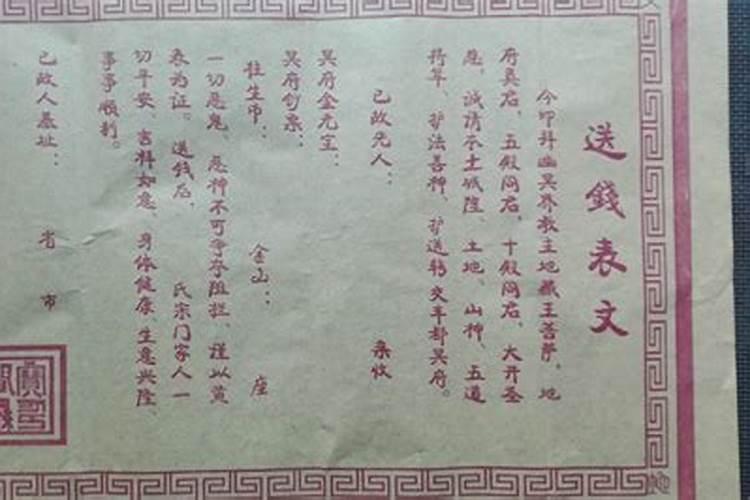 送錢表文
今叩拜幽冥界教主地藏王菩萨、地
府真君、五殿阎君、十殿阎君、大开圣
恩。诚请本土城隍、土地、山神、五道
将军、护法善神、护送转交丰都冥府。
已故先人: 亲收
冥府金元宝:
冥府勾票:
往生币: 金山: 座
一切恶鬼、恶神不可争夺阻拦、谨以黄
表为证。送钱后、 氏宗门家人一
切平安、吉祥如意、身体健康、生意兴隆、
事事顺利。
已故人墓址: 省 市